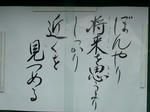 ぼんやり
将来を思うより
しっかり
近くを
見つめる